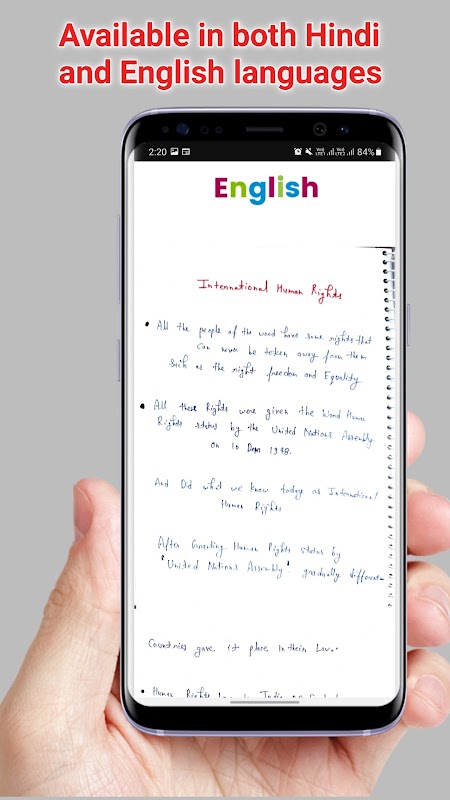 Available in both Hindi
and English languages
2:20
84%
English
International Human Rights
All the people of the word have some rights that
can never be teken away from them
such as the right freedom and Equality
All these Rights were given the Word Human
Rights status by the United Nations Assembly
on 10 1948.
And Did what we know today as International
Human Rights
After Granting Human Rights status by
"United Nations Assembly". gradually different
Countries gave it place in their Law..
Human Rights